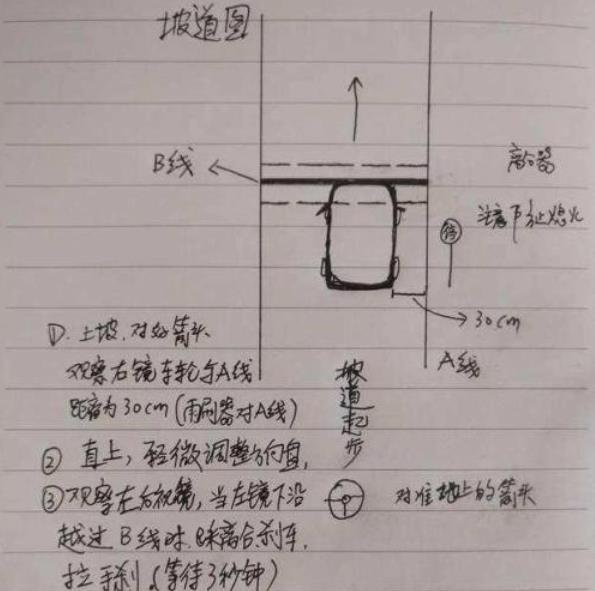 坡道图
B线
离合器
注意防止熄火
停
30cm
A线
坡道起步
①.上坡,对好箭头.
观察右镜车轮与A线
距离为30cm(雨刷器对A线)
② 直上,轻微调整方向盘,
③观察左后视镜,当左镜下沿
对准地上的箭头
越过B线时.踩离合刹车,
拉手刹(等待3秒钟)